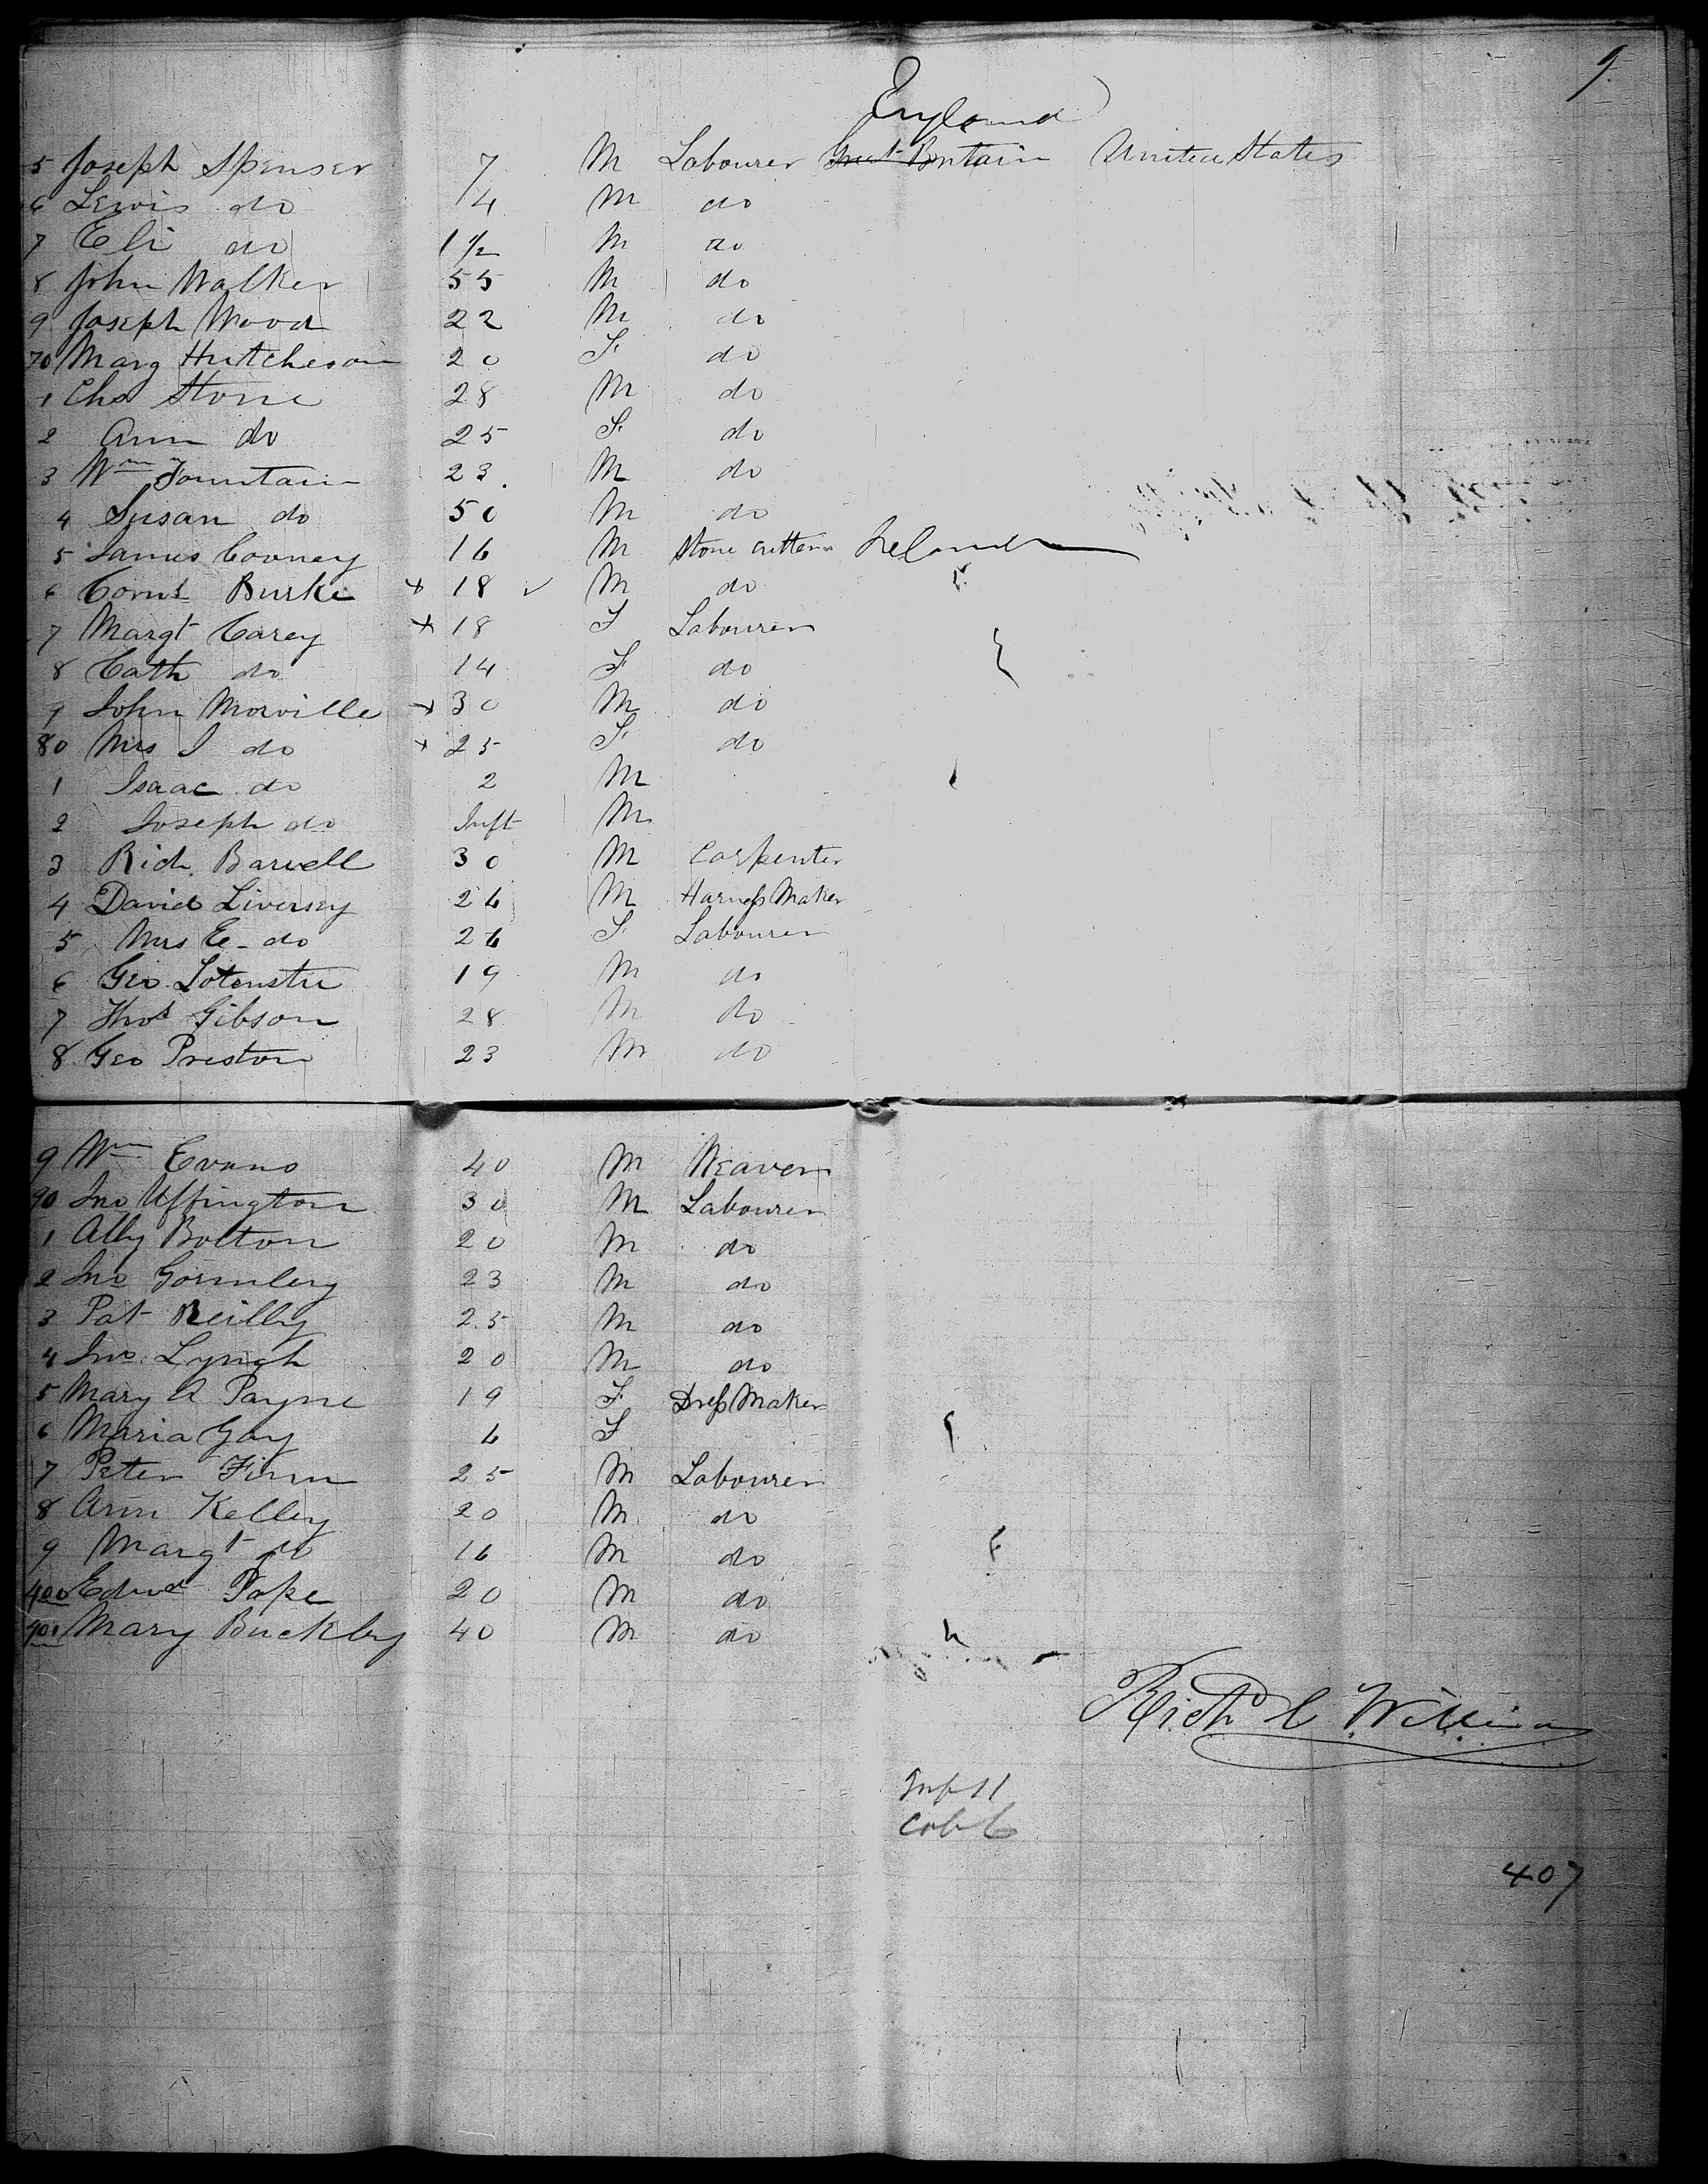 9
England
5 Joseph Spenser 7 M Labourer Great Britain United States
6 Lewis do 4 M do
7 Eli do 1 1/2 M do
8 John Walker 55 M do
9 Joseph Wood 22 M do
70 Marg Hutcheson 20 F do
1 Chs Stone 28 M do
2 Ann do 25 F do
3 Wm Fountain 23 M do
4 Susan do 50 M do
5 James Cooney 16 M Stone Cutter Ireland
6 Corns Burke + 18 ✓ M do
7 Margt Carey + 18 F Labourer
8 Cath do 14 F do
9 John Morville + 30 M do
80 Mrs J do + 25 F do
1 Isaac do 2 M
2 Joseph do Inft M
3 Rich. Barwell 30 M Carpenter
4 David Liversey 26 M Harness Maker
5 Mrs E - do 26 F Labourer
6 Geo. 19 M do
7 Thos Gibson 28 M do
8 Geo Preston 23 M do
9 Wm Evans 40 M Weaver
90 Jno Uffington 30 M Labourer
1 Ally Bolton 20 M do
2 Jno Gormley 23 M do
3 Pat Reilly 25 M do
4 Jno. Lynch 20 M do
5 Mary A Payne 19 F Dress Maker
6 Maria Gay 6 F
7 Peter Finn 25 M Labourer
8 Ann Kelley 20 M do
9 Margt do 16 M do
400 Edwd Pape 20 M do
401 Mary Buckley 40 M do
Richd C
Inf 11
Cab 6
407